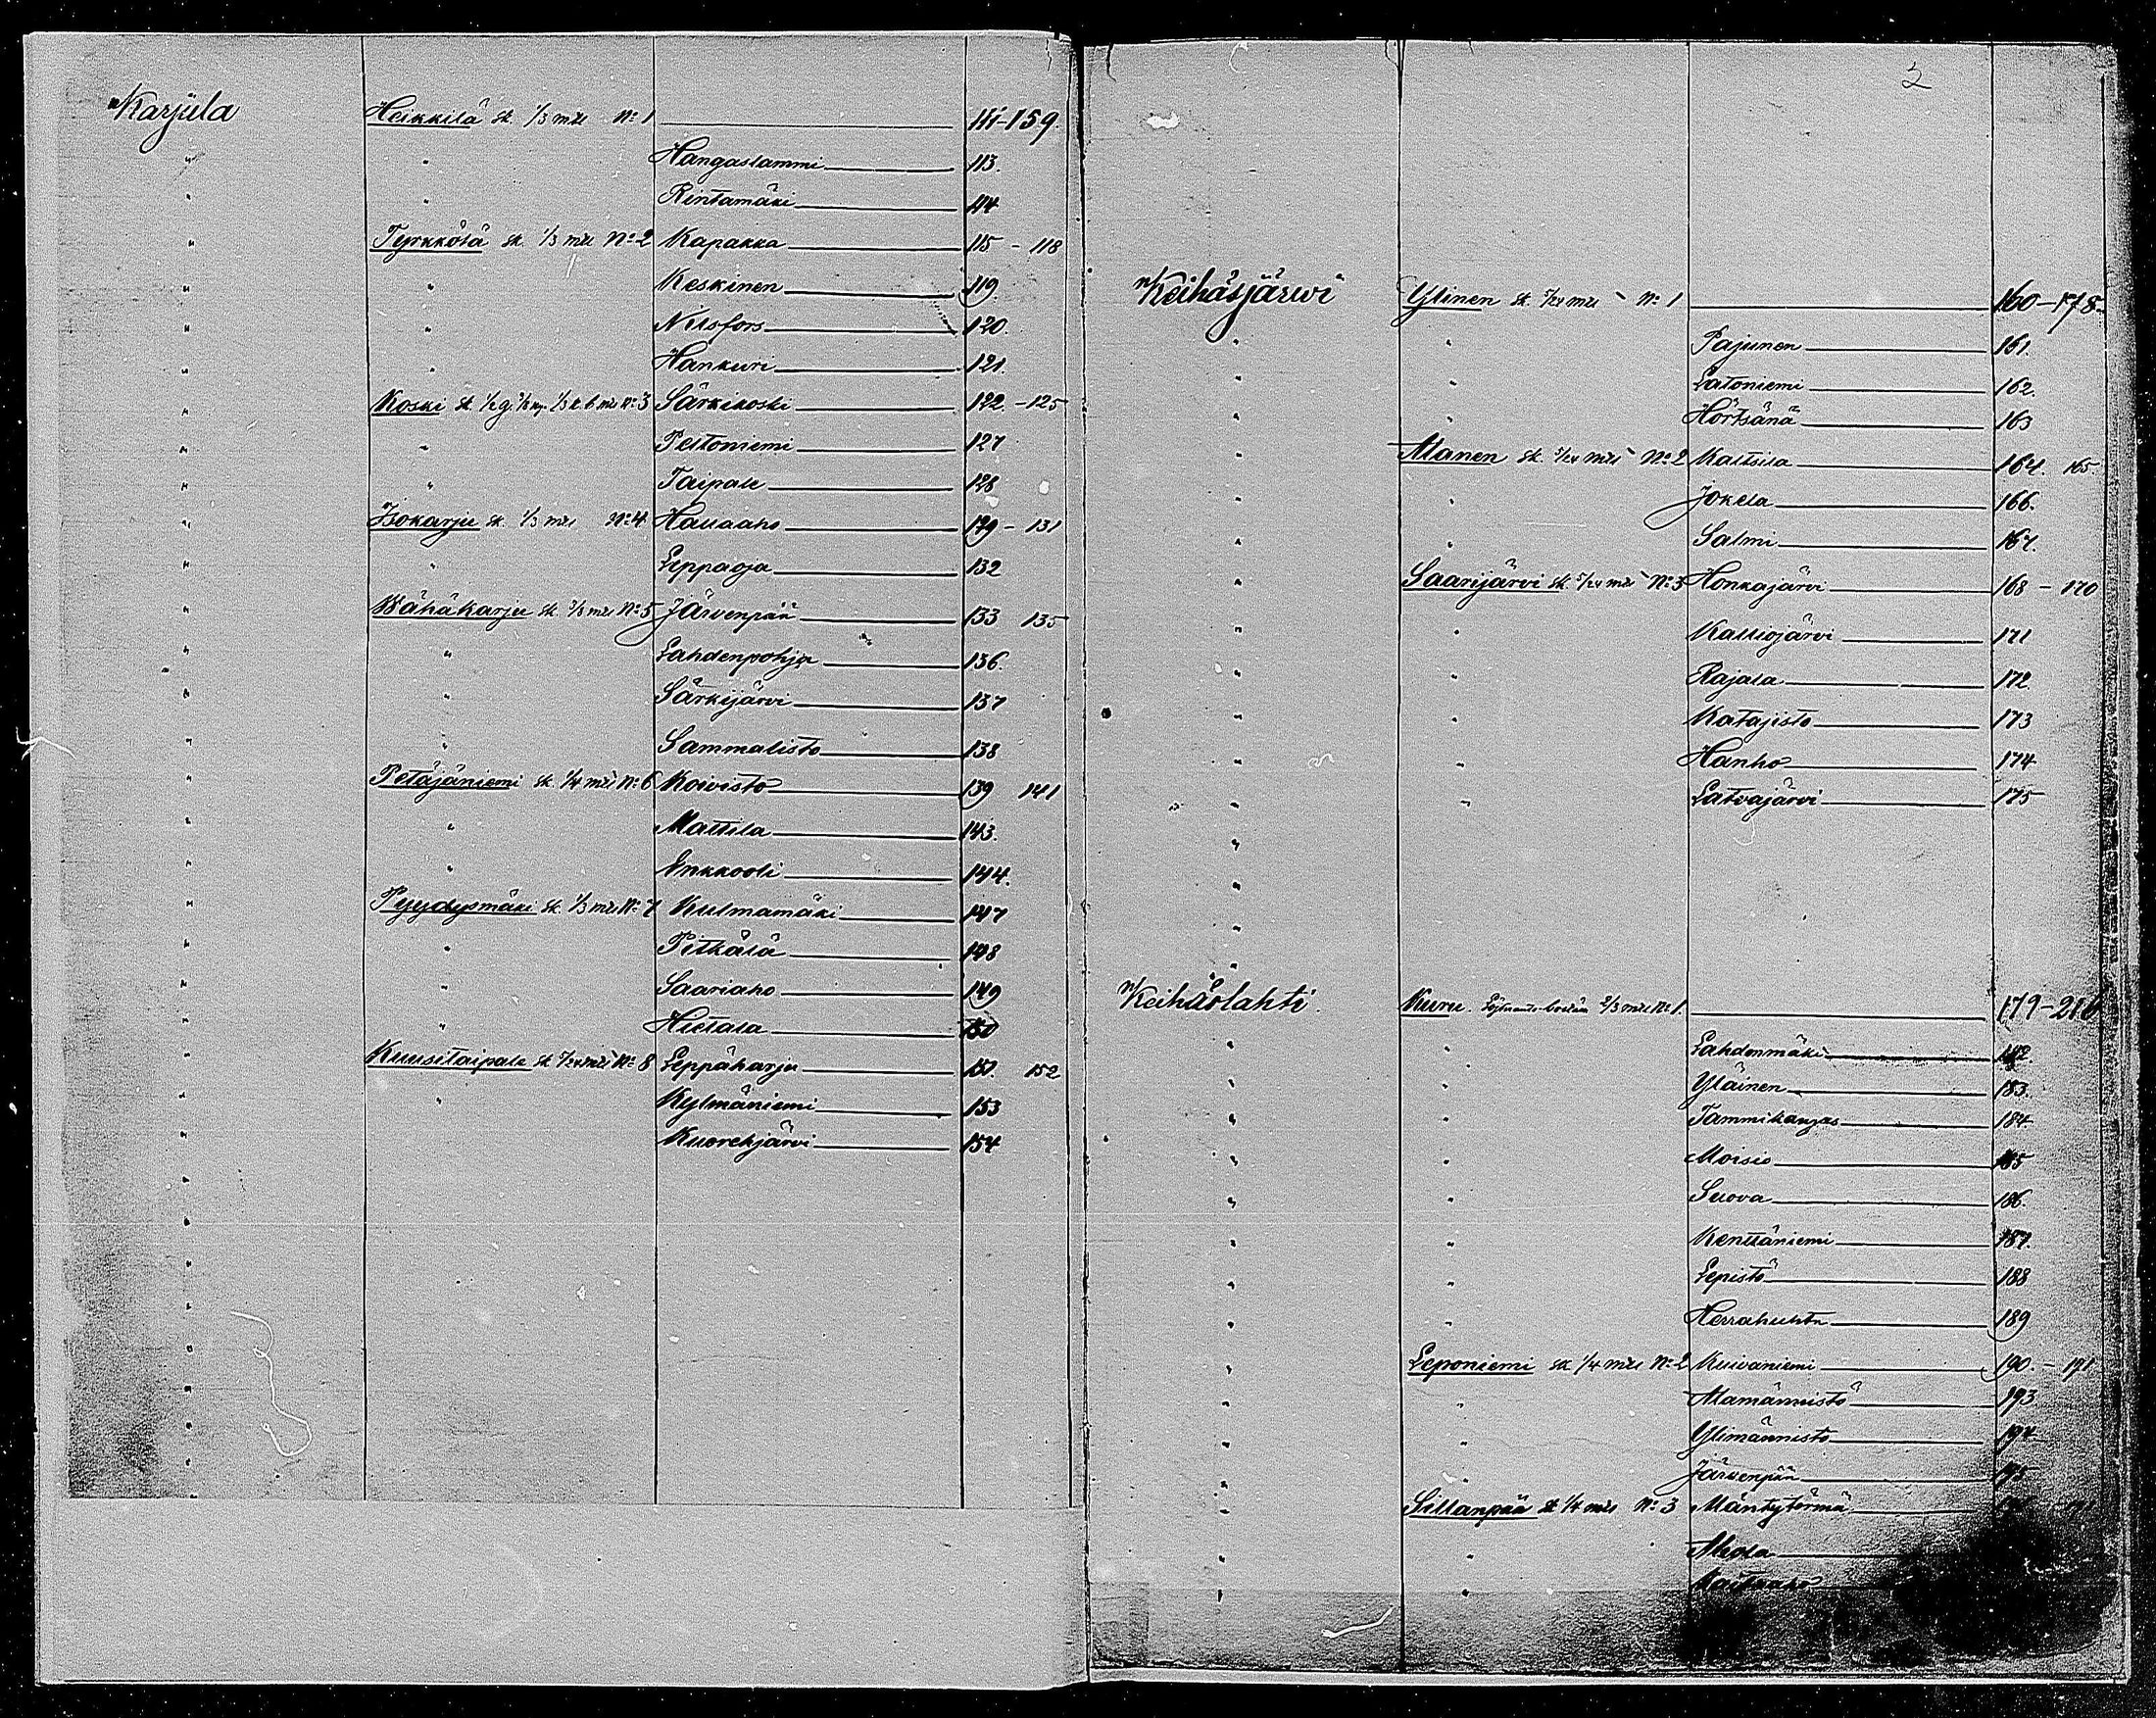 Karjula Heikkilä sk. 1/3 mtl No 1 111-159.
" " Hangaslammi 113.
" " Rintamäki 114
" Tyrkkölä sk. 1/3 mtl No 2 Kapakka 115 - 118
" " Keskinen 119.
" " Nilsfors 120.
" " Hankuri 121.
" Koski sk. 1/3 mtl No 3 Särkikoski 122. - 125
" " Peltoniemi 127
" " Taipale 128
" Isokarju sk. 1/3 mtl No 4 Hallaaho 129 - 131
" " Leppäoja 132
" Wähäkarju sk. 1/3 mtl No 5 Järvenpää 133 135
" " Lahdenpohja 136.
" " Särkijärvi 137
" " Sammalisto 138
" Petäjäniemi sk. 1/4 mtl No 6 Koivisto 139 141
" " Mattila 143.
" " Inkkooli 144.
" Pyydysmäki sk. 1/3 mtl No 7 Kulmamäki 147
" " Pitkälä 148
" " Saariaho 149
" " Hietala 150
" Kuusitaipale sk. 7/24 mtl No 8 Leppäharju 151. 152
" " Kylmäniemi 153
" Kuorehjärvi 154
2
Keihäsjärwi Ylinen sk. 7/24 mtl No 1 160-178
" " Pajunen 161.
" " Latoniemi 162.
" " Hörtsänä 163
" Alanen sk. 7/24 mtl No 2 Kaltsila 164. 165
" " Jokela 166.
" " Salmi 167.
" Saarijärvi sk. 5/24 mtl No 3 Honkajärvi 168 - 170
" " Kalliojärvi 171
" " Rajala 172
" " Katajisto 173
" " Hanho 174
" " Latvajärvi 175
Keihäslahti Kuru Löjtnants-boställe 2/3 mtl No 1. 179-216
" " Lahdenmäki 182.
" " Yläinen 183.
" " Tammikangas 184
" " Moisio 185
" " Suova 186.
" " Kenttäniemi 187.
" " Lepistö 188
" " Herrahuhta 189
" Leponiemi sk. 1/4 mtl No 2 Kuivaniemi 190. - 191
" " Alamännistö 193
" " Ylimännistö 194
" " Järvenpää 195
" Sillanpää sk. 1/4 mtl No 3 Mäntytörmä
" " Ahola
" "